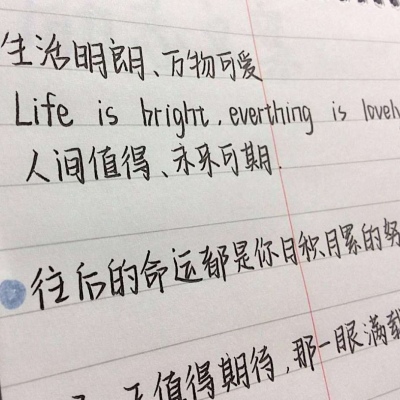 生活明朗、万物可爱
Life is bright, everthing is lovely
人间值得、未来可期.
往后的命运都是你日积月累的努
值得期待,那一眼满载